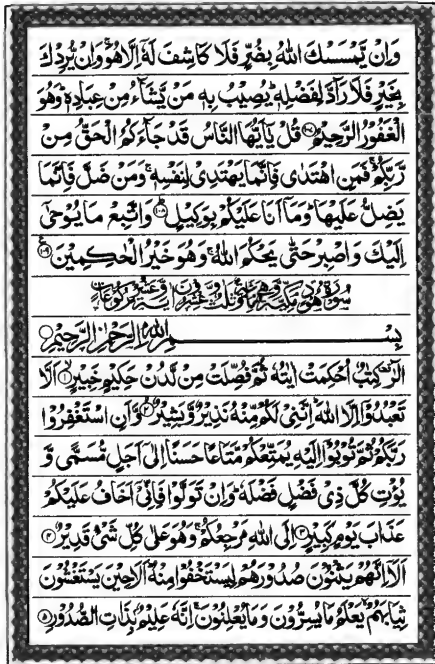 وَاِنْ يَّمْسَسْكَ اللّٰهُ بِضُرٍّ فَلَا كَاشِفَ لَهٗۤ اِلَّا هُوَ ۚ وَاِنْ يُّرِدْكَ
بِخَيْرٍ فَلَا رَآدَّ لِفَضْلِهٖ ؕ يُصِيْبُ بِهٖ مَنْ يَّشَآءُ مِنْ عِبَادِهٖ ؕ وَهُوَ
الْغَفُوْرُ الرَّحِيْمُ ﴿۱۰۷﴾ قُلْ يٰۤاَيُّهَا النَّاسُ قَدْ جَآءَكُمُ الْحَقُّ مِنْ
رَّبِّكُمْ ۚ فَمَنِ اهْتَدٰى فَاِنَّمَا يَهْتَدِىْ لِنَفْسِهٖ ۚ وَمَنْ ضَلَّ فَاِنَّمَا
يَضِلُّ عَلَيْهَا ۚ وَمَاۤ اَنَا عَلَيْكُمْ بِوَكِيْلٍ ﴿۱۰۸﴾ وَاتَّبِعْ مَا يُوْحٰۤى
اِلَيْكَ وَاصْبِرْ حَتّٰى يَحْكُمَ اللّٰهُ ۚ وَهُوَ خَيْرُ الْحٰكِمِيْنَ ﴿۱۰۹﴾
سُوْرَةُ هُوْدٍ مَكِّيَّةٌ وَّهِىَ مِائَةٌ وَّثَلٰثٌ وَّعِشْرُوْنَ اٰيَةً وَّعَشْرُ رُكُوْعَاتٍ
بِسْمِ اللّٰهِ الرَّحْمٰنِ الرَّحِيْمِ
الٓرٰ ۚ كِتٰبٌ اُحْكِمَتْ اٰيٰتُهٗ ثُمَّ فُصِّلَتْ مِنْ لَّدُنْ حَكِيْمٍ خَبِيْرٍ ﴿۱﴾ اَلَّا
تَعْبُدُوْۤا اِلَّا اللّٰهَ ؕ اِنَّنِىْ لَكُمْ مِّنْهُ نَذِيْرٌ وَّبَشِيْرٌ ﴿۲﴾ وَّاَنِ اسْتَغْفِرُوْا
رَبَّكُمْ ثُمَّ تُوْبُوْۤا اِلَيْهِ يُمَتِّعْكُمْ مَّتَاعًا حَسَنًا اِلٰۤى اَجَلٍ مُّسَمًّى وَّ
يُؤْتِ كُلَّ ذِىْ فَضْلٍ فَضْلَهٗ ؕ وَاِنْ تَوَلَّوْا فَاِنِّىْۤ اَخَافُ عَلَيْكُمْ
عَذَابَ يَوْمٍ كَبِيْرٍ ﴿۳﴾ اِلَى اللّٰهِ مَرْجِعُكُمْ ۚ وَهُوَ عَلٰى كُلِّ شَىْءٍ قَدِيْرٌ ﴿۴﴾
اَلَاۤ اِنَّهُمْ يَثْنُوْنَ صُدُوْرَهُمْ لِيَسْتَخْفُوْا مِنْهُ ؕ اَلَا حِيْنَ يَسْتَغْشُوْنَ
ثِيَابَهُمْ ۙ يَعْلَمُ مَا يُسِرُّوْنَ وَمَا يُعْلِنُوْنَ ۚ اِنَّهٗ عَلِيْمٌۢ بِذَاتِ الصُّدُوْرِ ﴿۵﴾